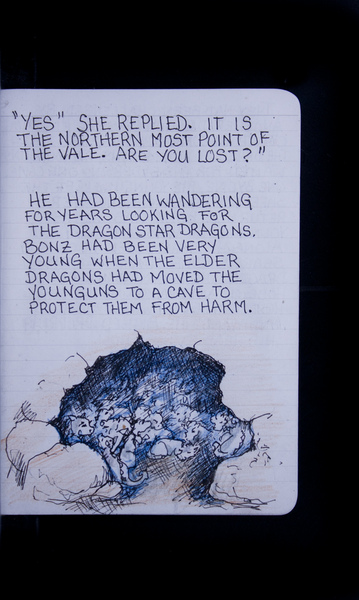 "YES" SHE REPLIED. IT IS
THE NORTHERN MOST POINT OF
THE VALE. ARE YOU LOST?"
HE HAD BEEN WANDERING
FOR YEARS LOOKING FOR
THE DRAGON STAR DRAGONS.
BONZ HAD BEEN VERY
YOUNG WHEN THE ELDER
DRAGONS HAD MOVED THE
YOUNGUNS TO A CAVE TO
PROTECT THEM FROM HARM.